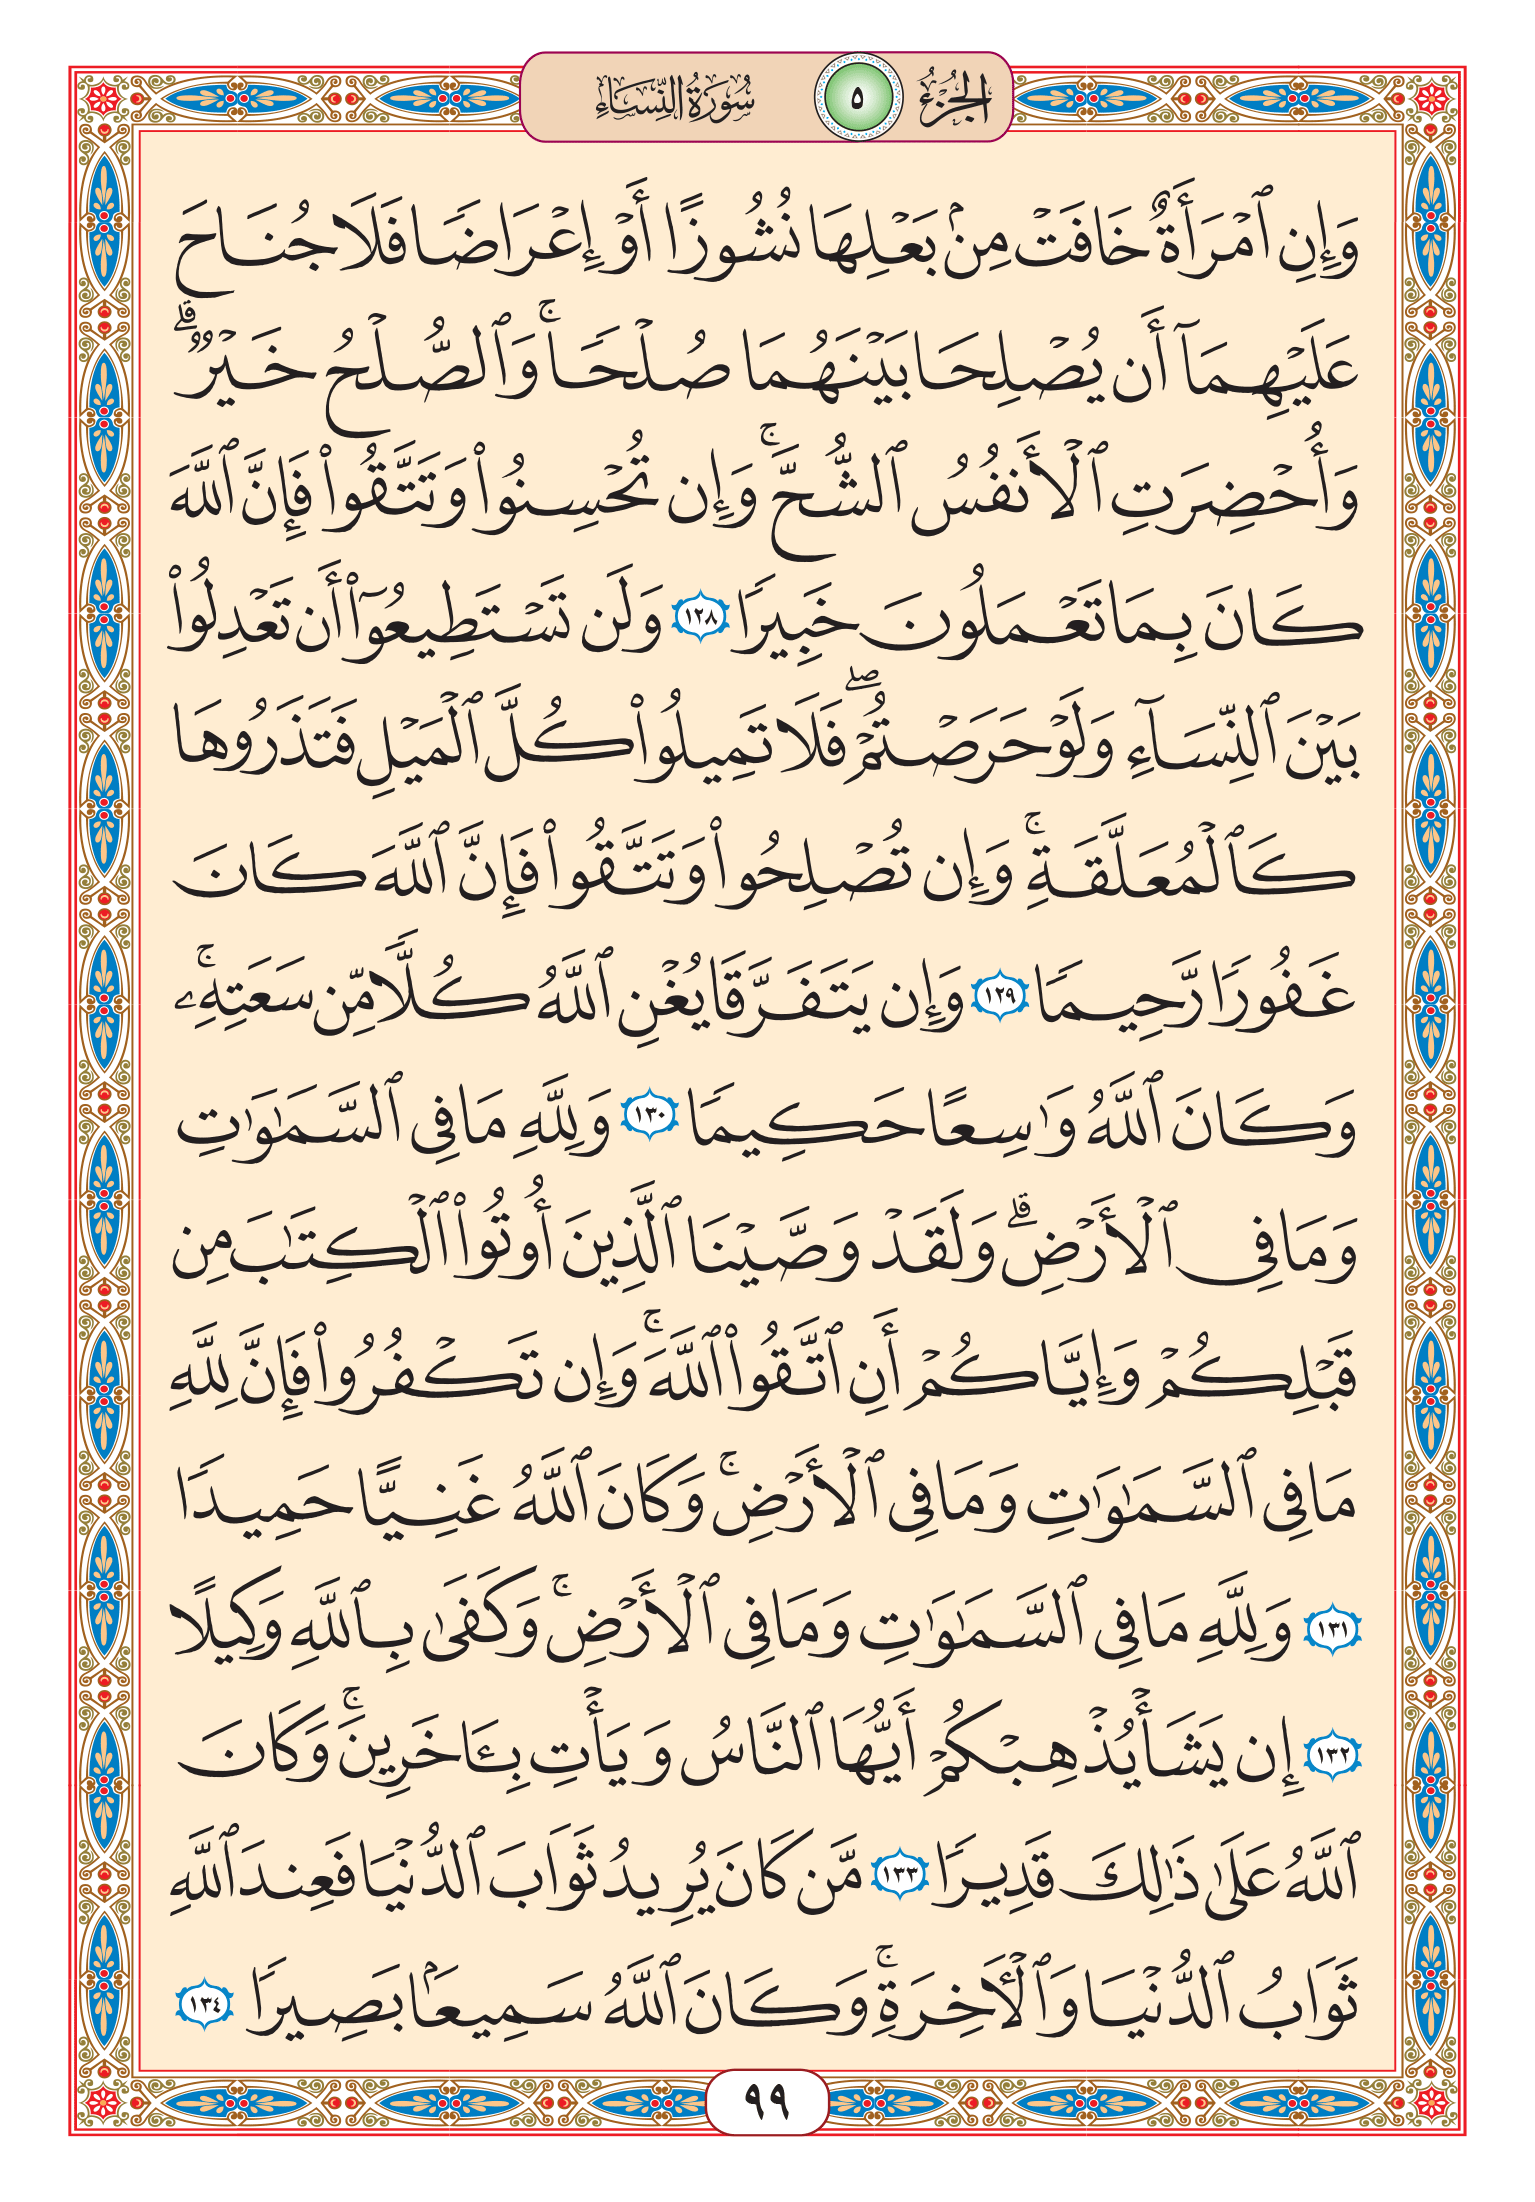 الجزء ٥ سورة النساء
وَإِنِ ٱمۡرَأَةٌ خَافَتۡ مِنۢ بَعۡلِهَا نُشُوزًا أَوۡ إِعۡرَاضٗا فَلَا جُنَاحَ
عَلَيۡهِمَآ أَن يُصۡلِحَا بَيۡنَهُمَا صُلۡحٗاۚ وَٱلصُّلۡحُ خَيۡرٞۗ
وَأُحۡضِرَتِ ٱلۡأَنفُسُ ٱلشُّحَّۚ وَإِن تُحۡسِنُواْ وَتَتَّقُواْ فَإِنَّ ٱللَّهَ
كَانَ بِمَا تَعۡمَلُونَ خَبِيرٗا ١٢٨ وَلَن تَسۡتَطِيعُوٓاْ أَن تَعۡدِلُواْ
بَيۡنَ ٱلنِّسَآءِ وَلَوۡ حَرَصۡتُمۡۖ فَلَا تَمِيلُواْ كُلَّ ٱلۡمَيۡلِ فَتَذَرُوهَا
كَٱلۡمُعَلَّقَةِۚ وَإِن تُصۡلِحُواْ وَتَتَّقُواْ فَإِنَّ ٱللَّهَ كَانَ
غَفُورٗا رَّحِيمٗا ١٢٩ وَإِن يَتَفَرَّقَا يُغۡنِ ٱللَّهُ كُلّٗا مِّن سَعَتِهِۦۚ
وَكَانَ ٱللَّهُ وَٰسِعًا حَكِيمٗا ١٣٠ وَلِلَّهِ مَا فِي ٱلسَّمَٰوَٰتِ
وَمَا فِي ٱلۡأَرۡضِۗ وَلَقَدۡ وَصَّيۡنَا ٱلَّذِينَ أُوتُواْ ٱلۡكِتَٰبَ مِن
قَبۡلِكُمۡ وَإِيَّاكُمۡ أَنِ ٱتَّقُواْ ٱللَّهَۚ وَإِن تَكۡفُرُواْ فَإِنَّ لِلَّهِ
مَا فِي ٱلسَّمَٰوَٰتِ وَمَا فِي ٱلۡأَرۡضِۚ وَكَانَ ٱللَّهُ غَنِيًّا حَمِيدٗا
١٣١ وَلِلَّهِ مَا فِي ٱلسَّمَٰوَٰتِ وَمَا فِي ٱلۡأَرۡضِۚ وَكَفَىٰ بِٱللَّهِ وَكِيلًا
١٣٢ إِن يَشَأۡ يُذۡهِبۡكُمۡ أَيُّهَا ٱلنَّاسُ وَيَأۡتِ بِـَٔاخَرِينَۚ وَكَانَ
ٱللَّهُ عَلَىٰ ذَٰلِكَ قَدِيرٗا ١٣٣ مَّن كَانَ يُرِيدُ ثَوَابَ ٱلدُّنۡيَا فَعِندَ ٱللَّهِ
ثَوَابُ ٱلدُّنۡيَا وَٱلۡأٓخِرَةِۚ وَكَانَ ٱللَّهُ سَمِيعَۢا بَصِيرٗا ١٣٤
٩٩